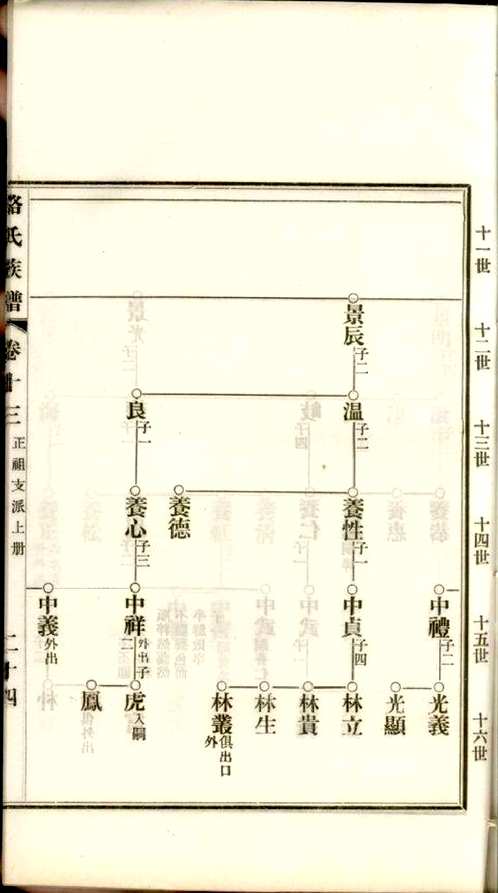 十一世
十二世
十三世
十四世
十五世
十六世
景辰 子二
温 子二
良 子一
養性 子一
養德
養心 子三
中禮 子二
中貞 子四
中祥 外出 子二
中義 外出
光義
光顯
林立
林貴
林生
林叢 俱出口外
虎 入嗣
鳳
氏族譜
卷十三
正祖支派上册
二十四